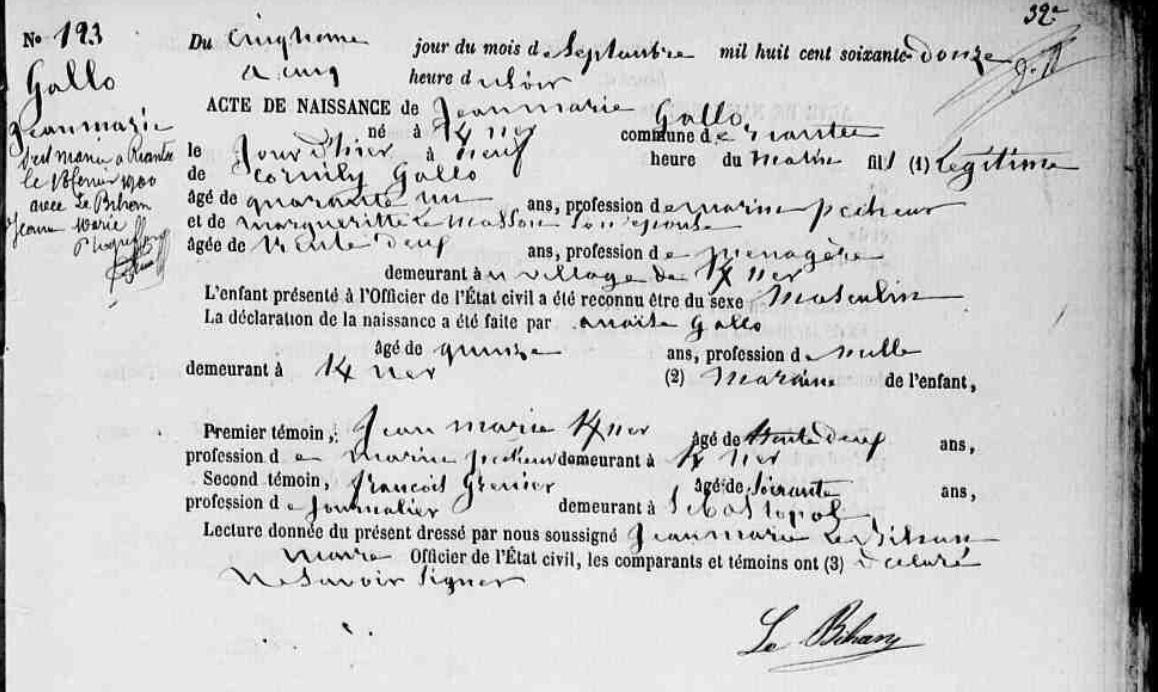 32
No 123
Gallo
Jean marie
Du Cinquième jour du mois de Septembre mil huit cent soixante-douze
a cinq heure du soir
ACTE DE NAISSANCE de Jean marie Gallo
né à Kner commune de riantec
le Jour d'hier à neuf heure du matin fils (1) Legitime
de Cornily Gallo
âgé de quarante un ans, profession de marin pecheur
et de margueritte Le masson Son epouse
âgée de trente deuf ans, profession de menagère
demeurant à u village de Kner
L'enfant présenté à l'Officier de l'État civil a été reconnu être du sexe Masculin
La déclaration de la naissance a été faite par Gallo
âgé de quinze ans, profession de nulle
demeurant à Kner (2) Maraine de l'enfant,
Premier témoin, Jean marie Kner âgé de trente deuf ans,
profession de marin pecheur demeurant à Kner
Second témoin, françois Grenier âgé de Soixante ans,
profession de Journalier demeurant à Sebastopol
Lecture donnée du présent dressé par nous soussigné Jean marie Le Bihan
maire Officier de l'État civil, les comparants et témoins ont (3) declaré
ne Savoir Signer
Le Bihan
S'est marié a Riantec
le fevrier 1900
avec Le Bihan
Jeanne Marie